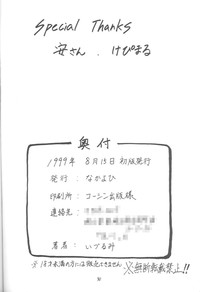 Special Thanks
安さん . けぴまる
奥付
1999年 8月15日 初版発行
発行: なかよひ
印刷所: コーシン出版様
連絡先:
著者: いづるみ
※18才未満の方には販売できません ※無断転載禁止!!